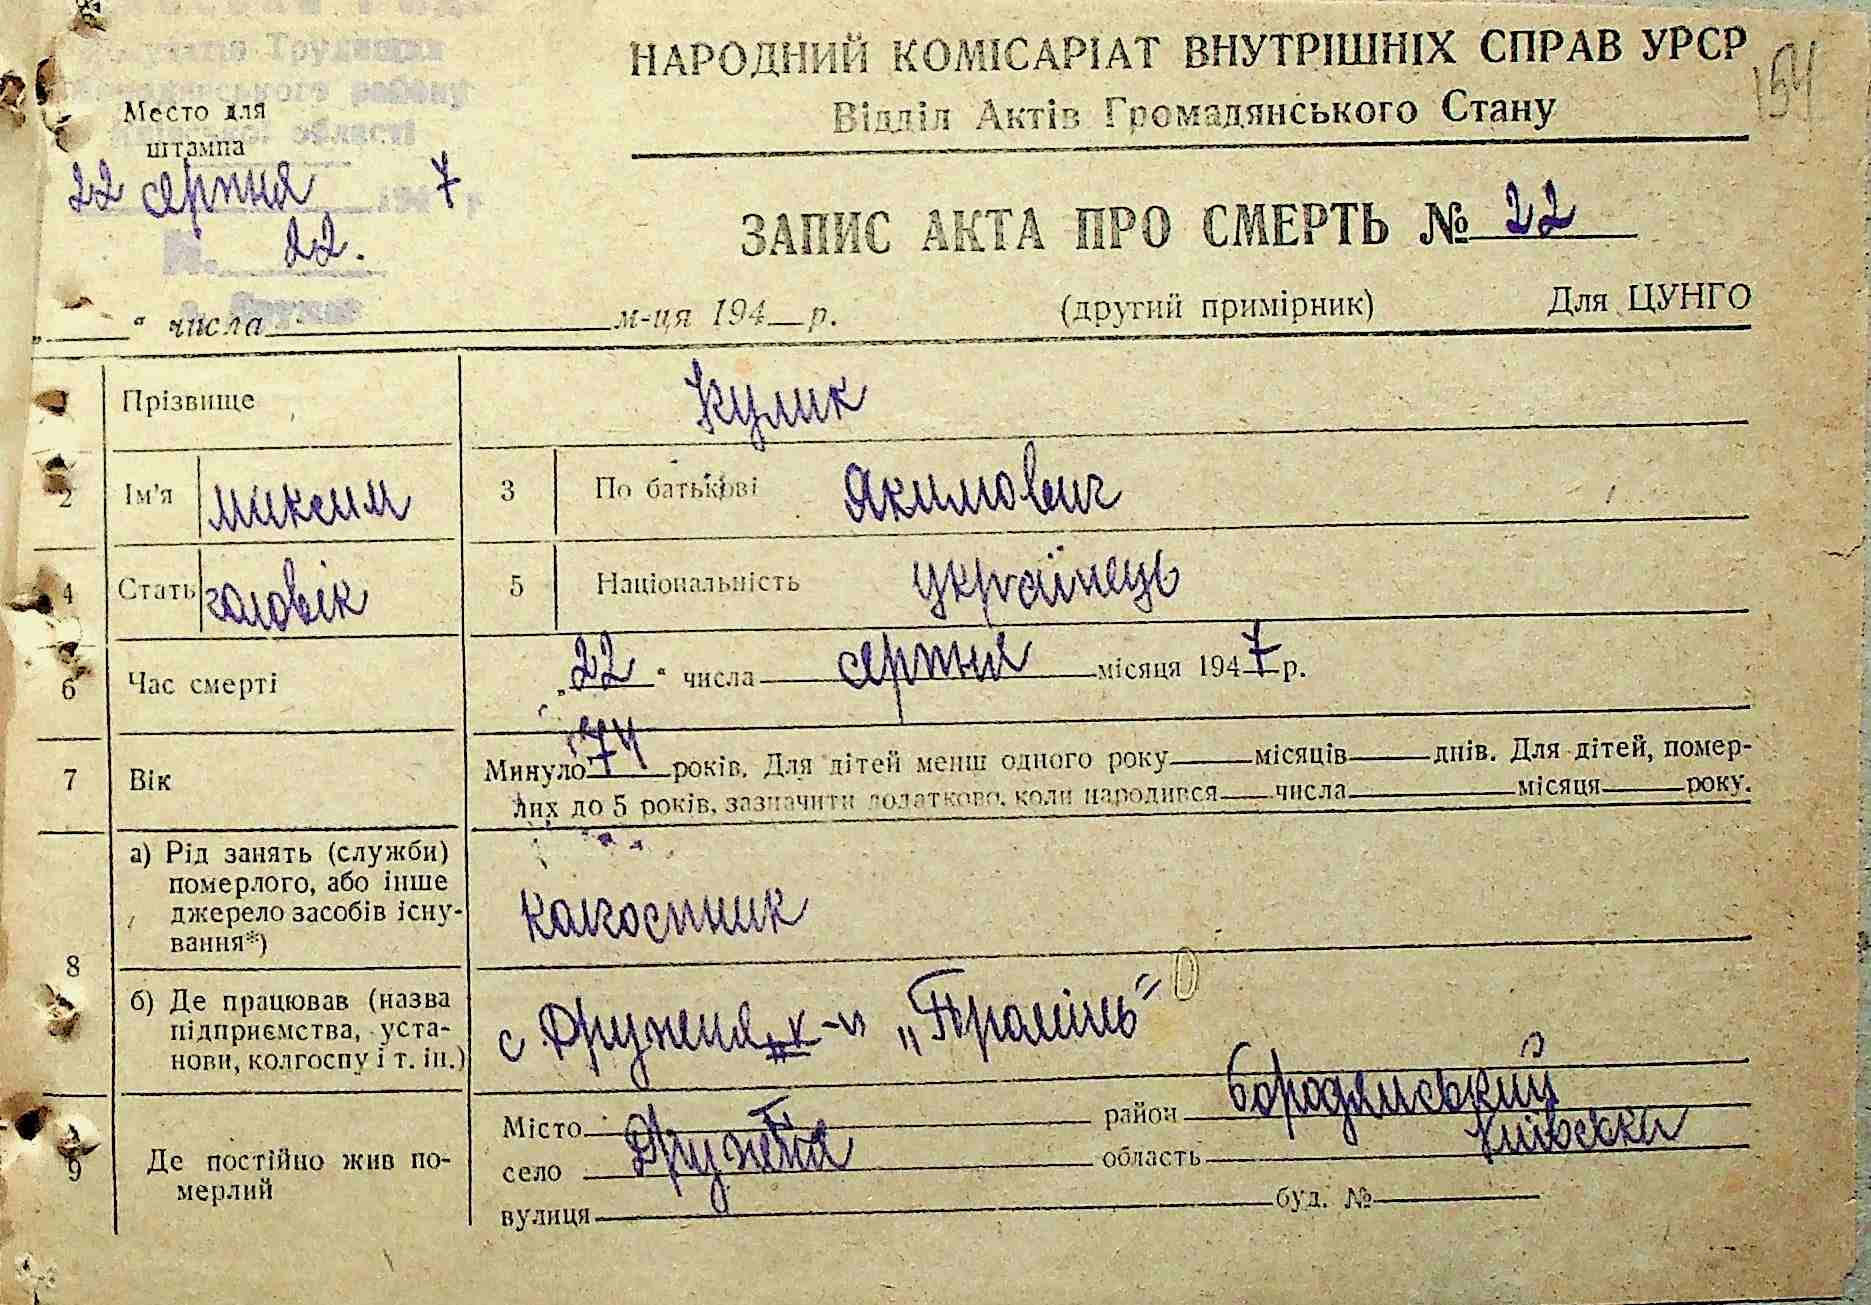 Трудящих
району
області
Место для
штампа
22 серпня 7
№. 22.
НАРОДНИЙ КОМІСАРІАТ ВНУТРІШНІХ СПРАВ УРСР
154
Відділ Актів Громадянського Стану
ЗАПИС АКТА ПРО СМЕРТЬ № 22
„ “ числа м-ця 194 р. (другий примірник) Для ЦУНГО
1 Прізвище Кулик
2 Ім'я Максим 3 По батькові Якимович
4 Стать чоловік 5 Національність українець
6 Час смерті „22“ числа серпня місяця 1947 р.
7 Вік Минуло 74 років. Для дітей менш одного року місяців днів. Для дітей, помер-
лих до 5 років, зазначити додатково, коли народився числа місяця року.
8
а) Рід занять (служби)
померлого, або інше
джерело засобів існу-
вання*)
колгоспник
б) Де працював (назва
підприємства, уста-
нови, колгоспу і т. ін.)
с Дружня к-п „Промінь“
9 Де постійно жив по-
мерлий
Місто район Бородянський
село Дружня область Київська
вулиця буд. №